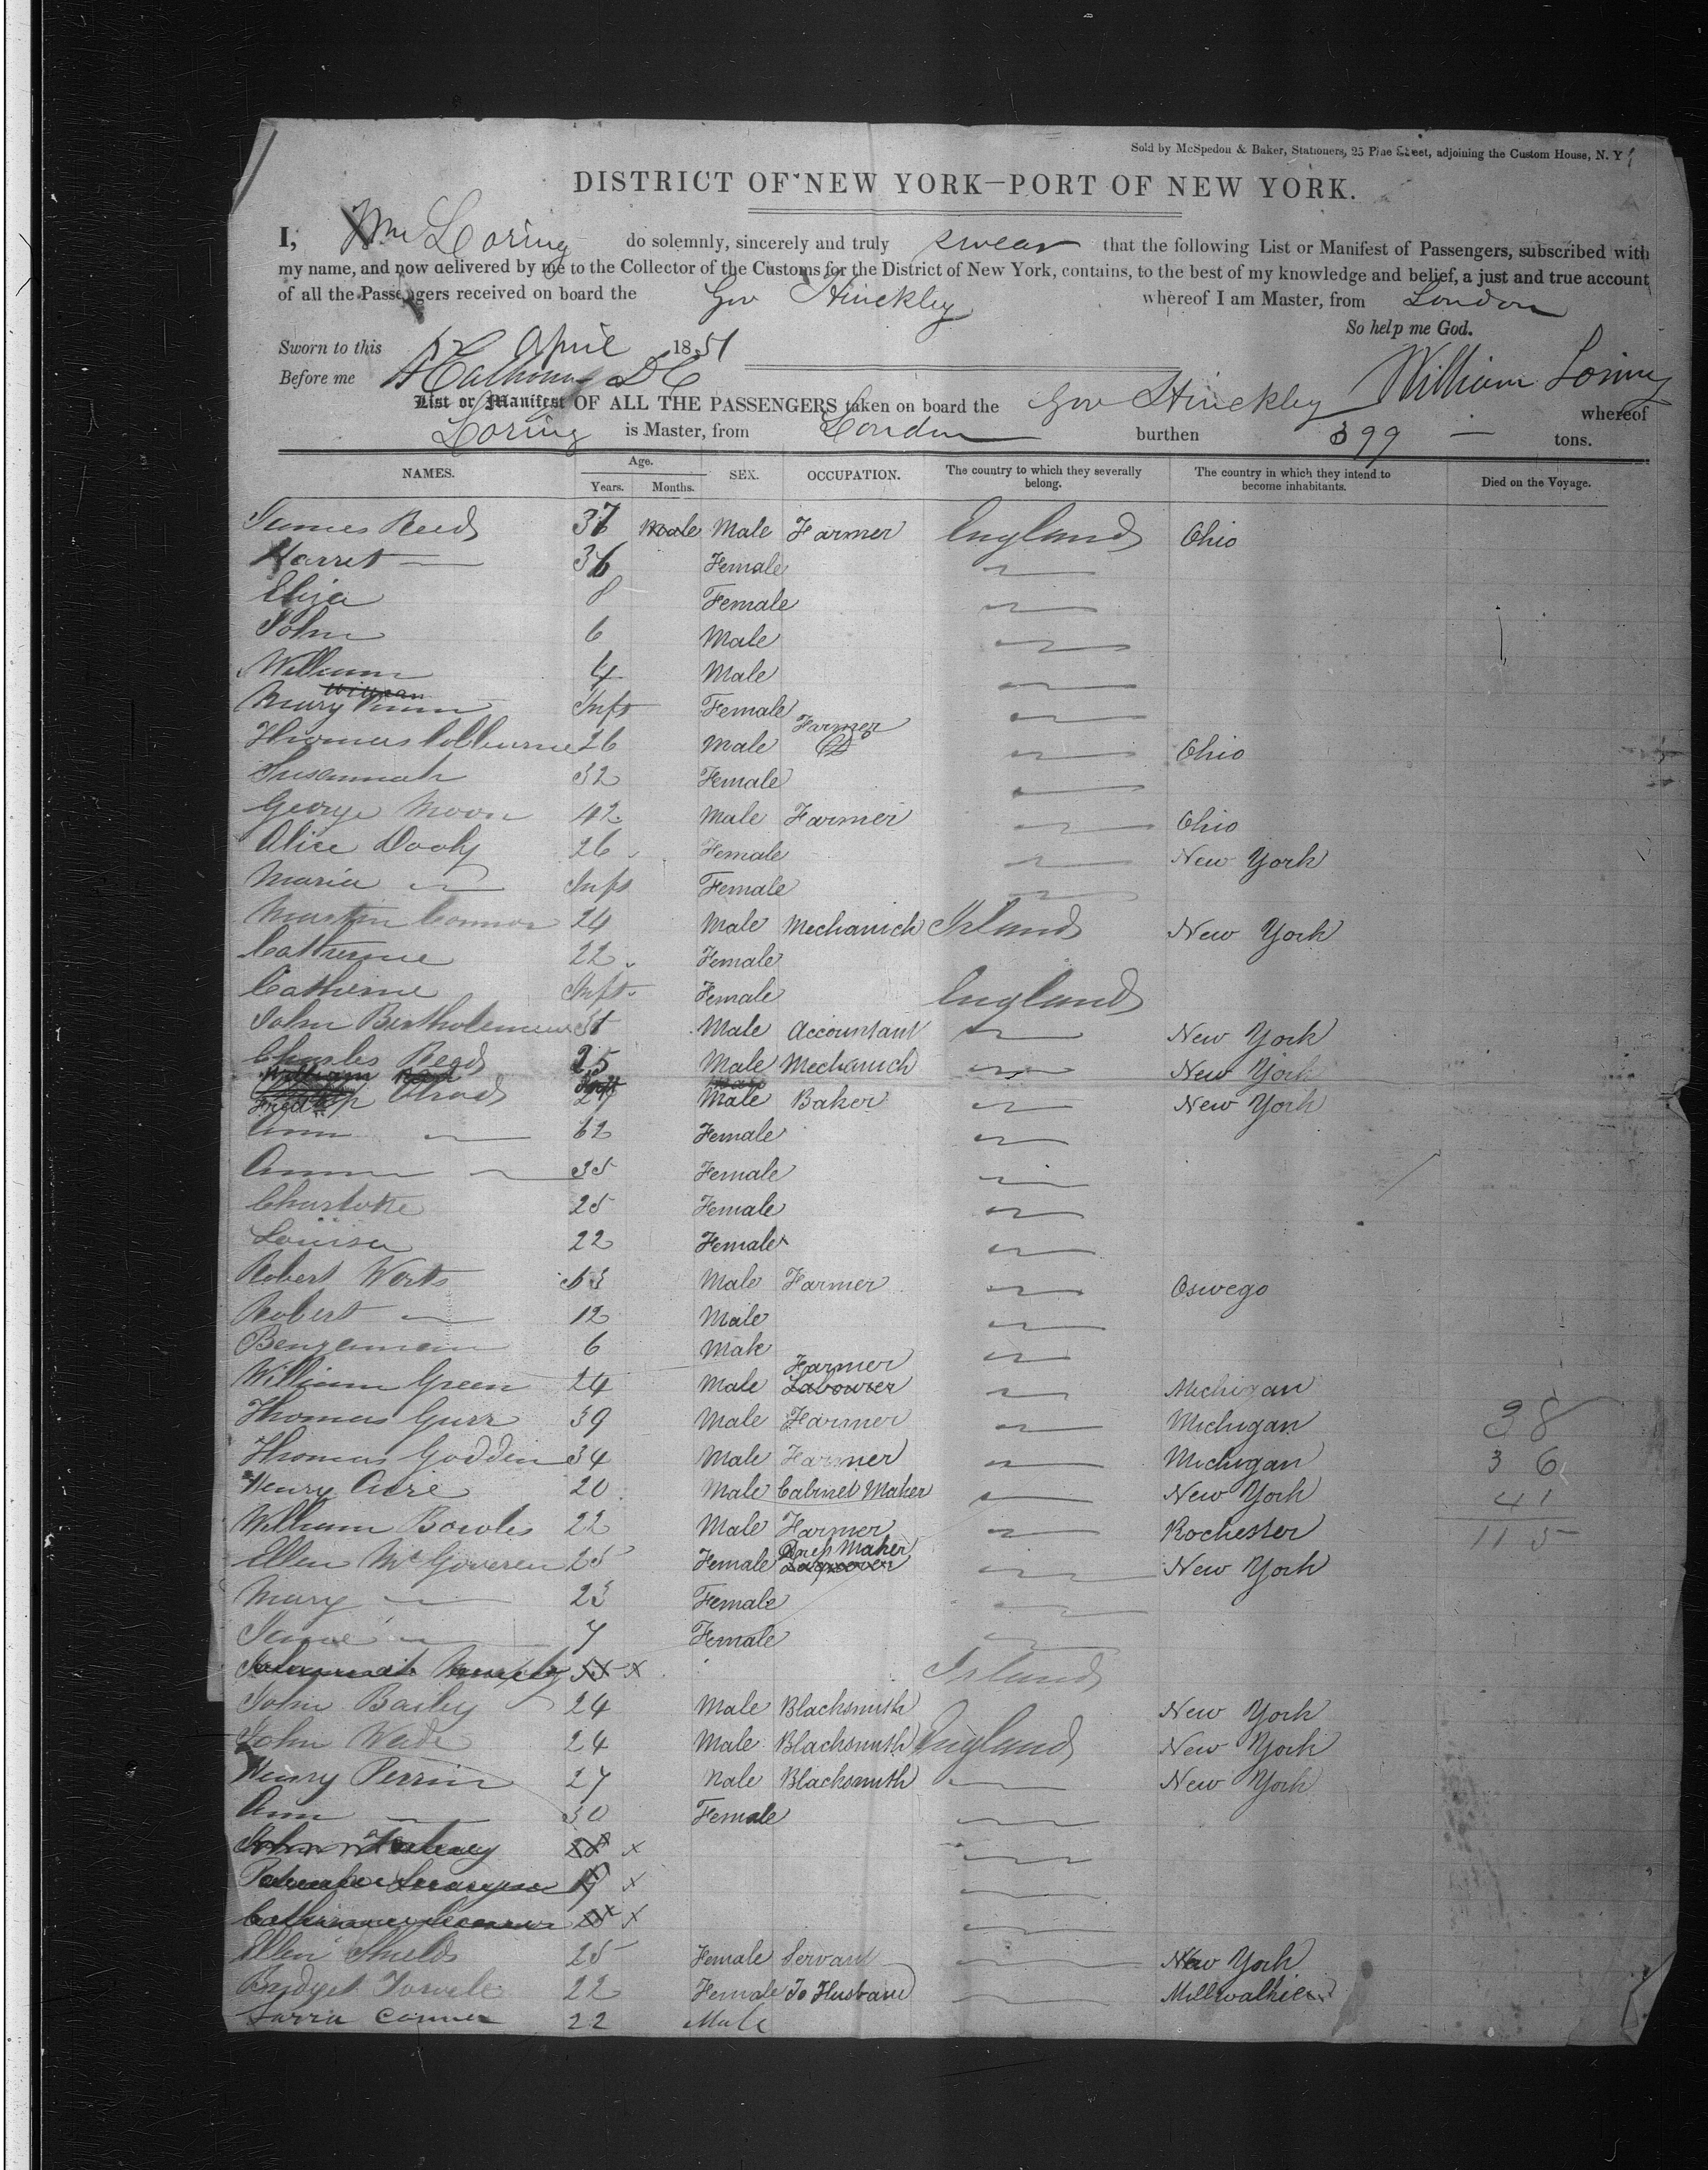 Sold by McSpedon & Baker, Stationers, 25 Pine Street, adjoining the Custom House, N. Y
DISTRICT OF NEW YORK—PORT OF NEW YORK.
I, Wm Loring do solemnly, sincerely and truly swear that the following List or Manifest of Passengers, subscribed with
my name, and now delivered by me to the Collector of the Customs for the District of New York, contains, to the best of my knowledge and belief, a just and true account
of all the Passengers received on board the Gov Hinckley whereof I am Master, from London
So help me God.
Sworn to this April 1851
Before me Calhoun DC William Loring
List or Manifest OF ALL THE PASSENGERS taken on board the Gov Hinckley whereof
Loring is Master, from London burthen 399 — tons.
NAMES. Age. Years. Months. SEX. OCCUPATION. The country to which they severally belong. The country in which they intend to become inhabitants. Died on the Voyage.
James Reed 37 Male Male Farmer England Ohio
Harret — 36 Female
Eliza 8 Female
John 6 Male
William 4 Male
Mary Ann Inft Female
Thomas Colburne 26 Male Farmer Ohio
Susannah 32 Female
George Moon 42 Male Farmer Ohio
Alice Dooly 26 Female New York
Maria Inft Female
Martin Connor 24 Male Mechanich Irland New York
Catherine 22 Female
Catherine Inft Female England
John Bertholemew 31 Male Accountant New York
Charles Read 25 Male Mechanich New York
27 Male Baker New York
Ann 62 Female
Anna 35 Female
Charlotte 25 Female
Louisa 22 Female
Robert Werts 53 Male Farmer Oswego
Robert — 12 Male
Benjamain 6 Male
William Green 24 Male Farmer Labourer Michigan
Thomas Gurr 39 Male Farmer Michigan 38
Thomas Godden 34 Male Farmer Michigan 36
Henry Acre 20 Male Cabinet Maker New York 41
William Bowles 22 Male Farmer Rochester 115
Ellen McGoveren 25 Female Maker New York
Mary — 23 Female
Jane 7 Female
Irland
John Baily 24 Male Blacksmith New York
John Wade 24 Male Blacksmith England New York
Henry Perrin 27 Male Blacksmith New York
Ann 30 Female
x
x
x
Ellen Shields 25 Female Servant New York
Bridget Towele 22 Female To Husband Millwalkie
Sarria Conner 22 Male